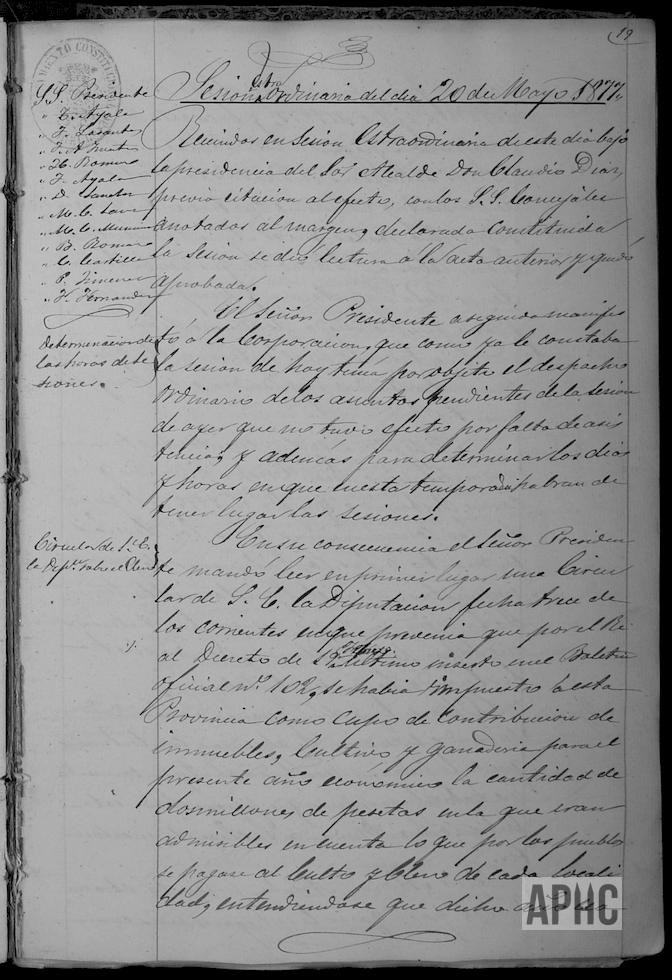 19
Sesion estraordinaria del dia 20 de Mayo 1877
S.S. Presidente
" Ayala
" F. Lasanta
" H. Romero
" F. Ayala
" B. Romero
" C. Castillo
" P. Jimenez
" H. Hernandez
Reunidos en Sesion estraordinaria de este dia bajo
la presidencia del Sor Alcalde Don Claudio Diaz,
previa citacion al efecto, con los S.S. Concejales
anotados al margen, declarada constituida
la Sesion se dio lectura a la acta anterior y quedó
aprobada.
determinacion de
las horas de se
siones.
El Señor Presidente a seguida manifes
tó á la Corporacion, que como ya le constaba
la sesion de hoy tenia por objeto el despacho
Ordinario de los asuntos pendientes de la sesion
de ayer que no tuvo efecto por falta de asis
tencia, y ademas para determinar los dias
y horas en que en esta temporada habran de
tener lugar las sesiones.
Circular de S. E.
la Dipon. sobre el Clero
En su consecuencia el Señor Presiden
te mandó leer en primer lugar una Circu
lar de S. E. la Diputacion fecha trece de
los corrientes en que prevenia que por el Re
al Decreto de ultimo inserto en el Boletin
oficial nº 102, se habia impuesto á esta
Provincia como cupo de contribucion de
inmuebles, Cultivo y ganaderia para el
presente año económico la cantidad de
dos millones de pesetas en la que eran
admisibles en cuenta lo que por los pueblos
se pagase al Culto y Clero de cada locali
dad, entendiendose que dicho
APHC